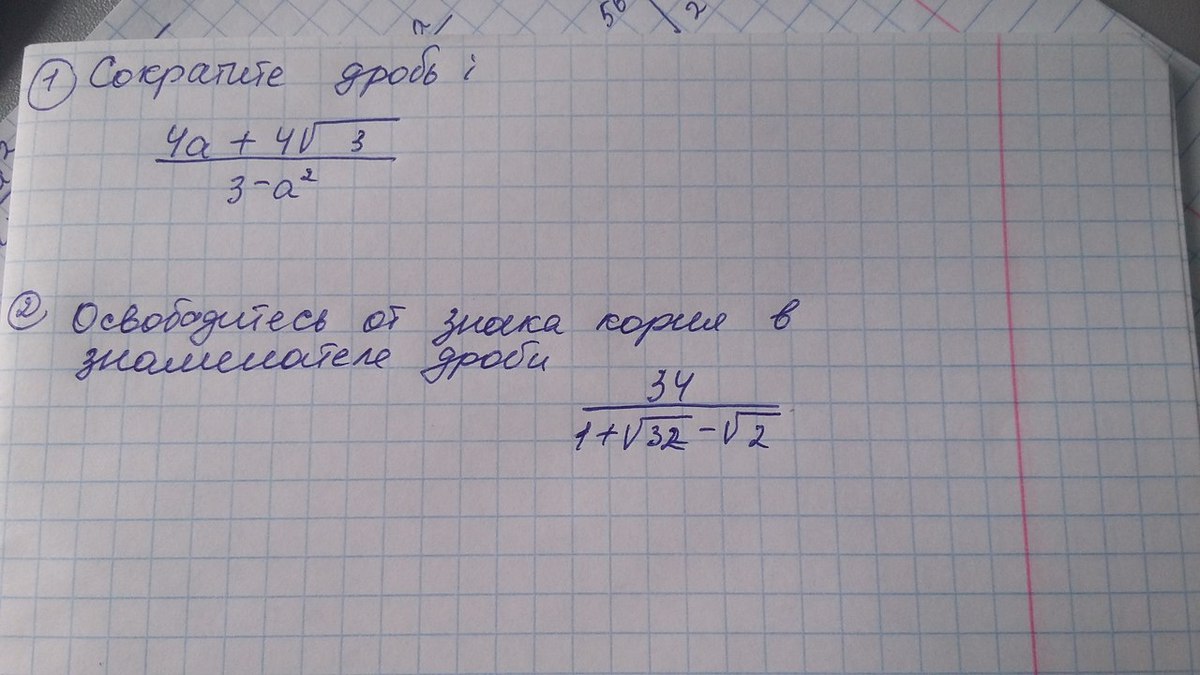 56 2
1 Сократите дробь:
4a + 4√3
3-a²
2 Освободитесь от знака корня в
знаменателе дроби
34
1+√32-√2